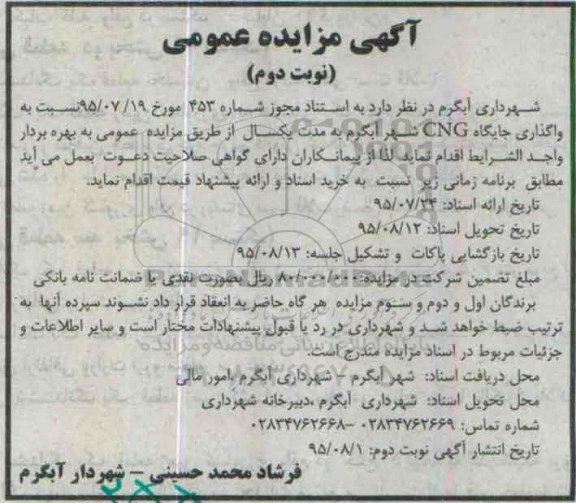 آگهی مزایده عمومی
(نوبت دوم)
شهرداری آبگرم در نظر دارد به استناد مجوز شماره ۴۵۳ مورخ ۹۵/۰۷/۱۹ نسبت به
واگذاری جایگاه CNG شهر آبگرم به مدت یکسال از طریق مزایده عمومی به بهره بردار
واجد الشرایط اقدام نماید. لذا از پیمانکاران دارای گواهی صلاحیت دعوت بعمل می آید
مطابق برنامه زمانی زیر نسبت به خرید اسناد و ارائه پیشنهاد قیمت اقدام نماید.
تاریخ ارائه اسناد: ۹۵/۰۷/۲۴
تاریخ تحویل اسناد: ۹۵/۰۸/۱۲
تاریخ بازگشایی پاکات و تشکیل جلسه: ۹۵/۰۸/۱۳
مبلغ تضمین شرکت در مزایده: ۸۰/۰۰۰/۰۰۰ ریال بصورت نقدی یا ضمانت نامه بانکی
برندگان اول و دوم و سوم مزایده هر گاه حاضر به انعقاد قرار داد نشوند سپرده آنها به
ترتیب ضبط خواهد شد و شهرداری در رد یا قبول پیشنهادات مختار است و سایر اطلاعات و
جزئیات مربوط در اسناد مزایده مندرج است.
محل دریافت اسناد: شهر آبگرم – شهرداری آبگرم ،امور مالی
محل تحویل اسناد: شهرداری آبگرم ،دبیرخانه شهرداری
شماره تماس: ۰۲۸۳۴۷۶۲۶۶۹ –۰۲۸۳۴۷۶۲۶۶۸
تاریخ انتشار آگهی نوبت دوم: ۹۵/۰۸/۱
فرشاد محمد حسینی – شهردار آبگرم